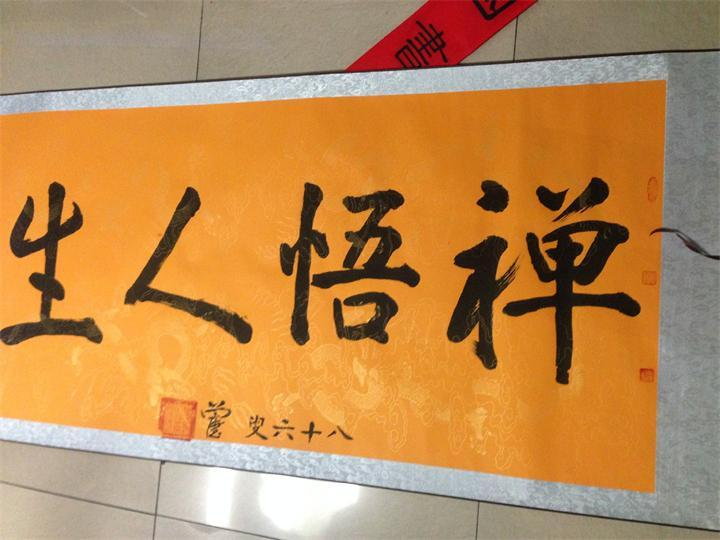 禅悟人生
八十六叟
書